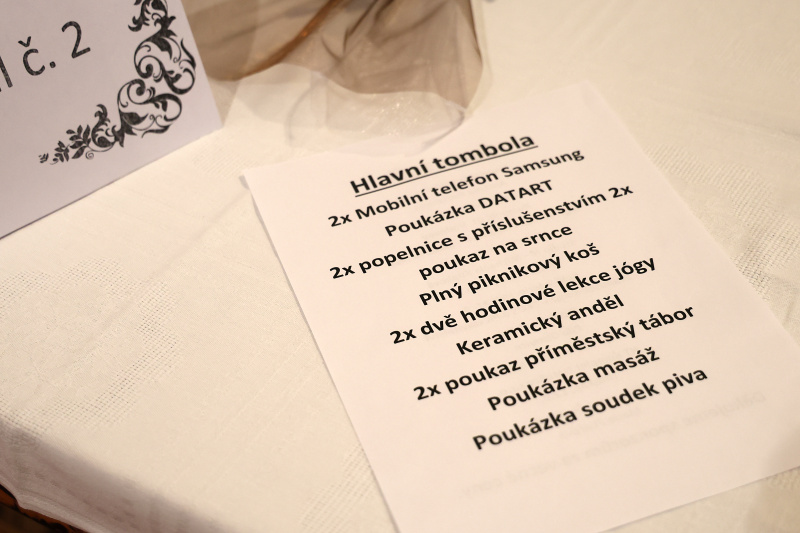 č. 2
Hlavní tombola
2x Mobilní telefon Samsung
Poukázka DATART
2x popelnice s příslušenstvím 2x
poukaz na srnce
Plný piknikový koš
2x dvě hodinové lekce jógy
Keramický anděl
2x poukaz příměstský tábor
Poukázka masáž
Poukázka soudek piva